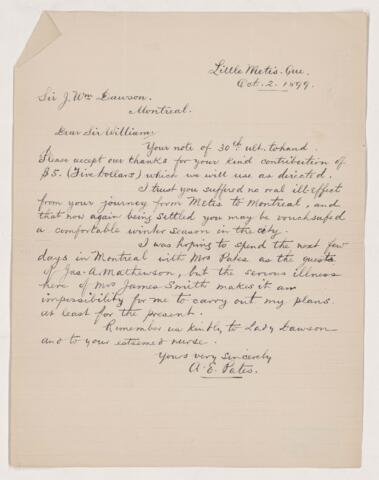 Little Metis. Que.
Oct. 2. 1899.
Sir J. Wm Dawson.
Montreal.
Dear Sir William,
Your note of 30th ult. to hand.
Please accept our thanks for your kind contribution of
$5. (Five dollars) which we will use as directed.
I trust you suffered no real ill-effect
from your journey from Metis to Montreal, and
that now again being settled you may be vouchsafed
a comfortable winter season in the city.
I was hoping to spend the next few
days in Montreal with Mrs Pates as the guests
of Jas. A. Mathewson, but the serious illness
here of Mrs James Smith makes it an
impossibility for me to carry out my plans
at least for the present.
Remember us kindly to Lady Dawson
and to your esteemed nurse.
Yours very sincerely
A. E. Pates.